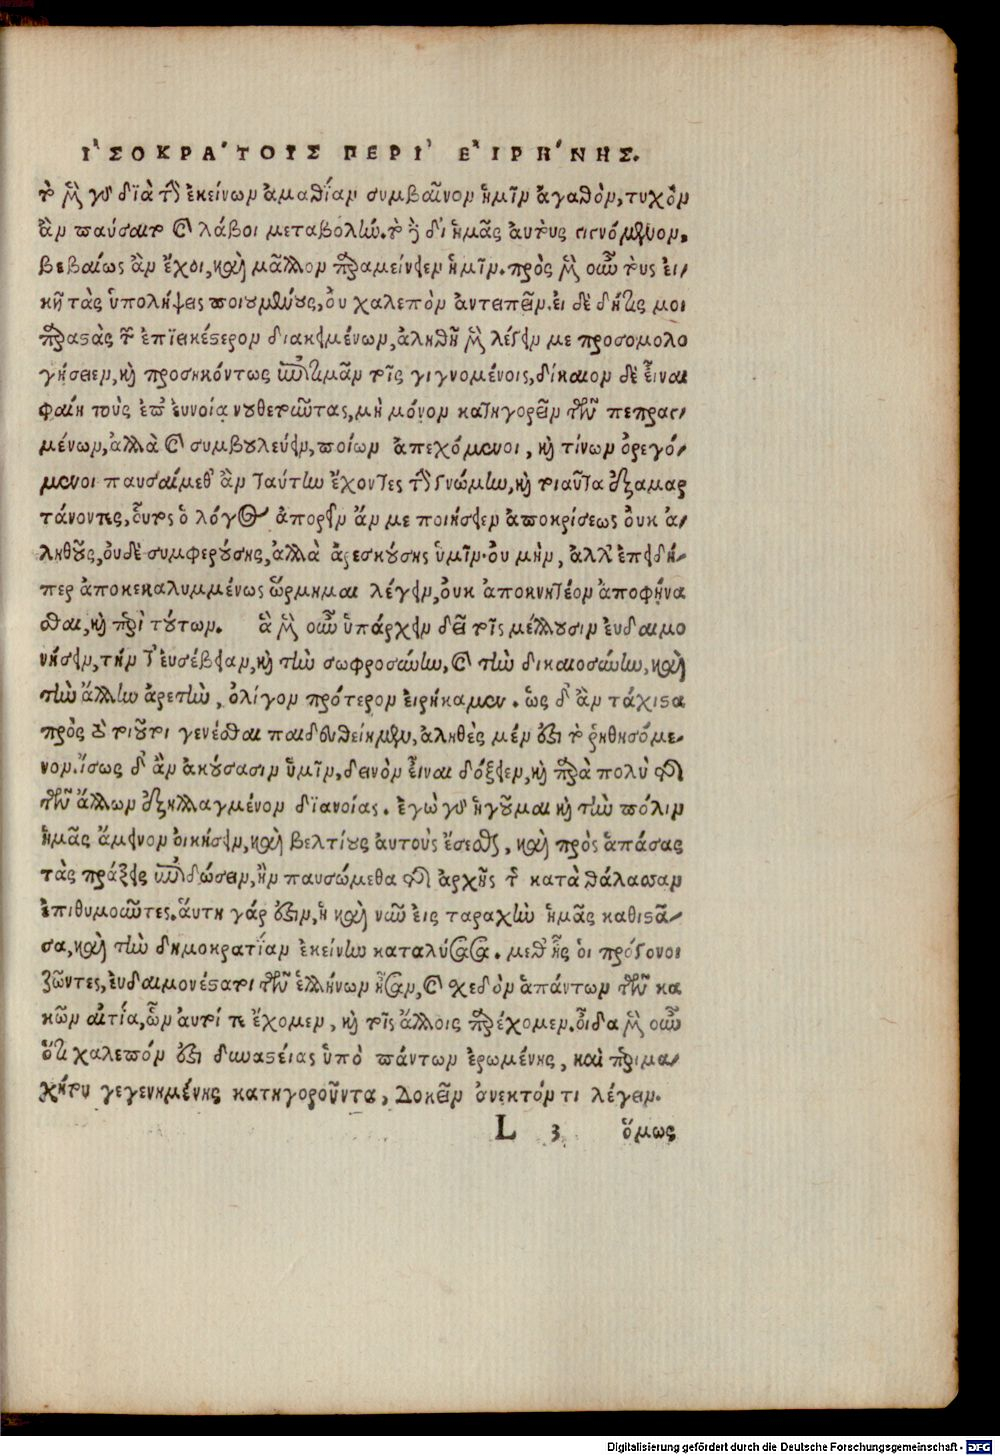 ἸΣΟΚΡΑ´ΤΟΥΣ ΠΕΡΙ` ΕἸΡΗ´ΝΗΣ.
τὸ μὲν γὰρ διὰ τὴν ἐκείνων ἀμαθίαν συμβαῖνον ἡμῖν ἀγαθὸν, τυχὸν
ἂν παύσαιτο καὶ λάβοι μεταβολὴν. τὸ δὲ δι ἡμᾶς αυτοὺς γιγνόμενον,
βεβαίως ἂν ἔχοι, καὶ μᾶλλον παραμείνειεν ἡμῖν. πρὸς μὲν οὖν τοὺς εἰ-
κῆ τὰς ὑπολήψεις ποιουμένους, ου χαλεπὸν ἀντειπεῖν. ἐι δὲ δή τις μοι
παραστὰς τῶν ἐπιεικέστερον διακειμένων, ἀληθῆ μὲν λέγειν με προσομολο
γήσειεν, καὶ προσηκόντως ἐπιτιμᾶν τοῖς γιγνομένοις, δίκαιον δὲ εἶναι
φαίη τοὺς ἐπ ἐυνοία νουθετοῦντας, μὴ μόνον κατηγορεῖν τῶν πεπραγ-
μένων, ἀλλὰ καὶ συμβουλεύειν, ποίων ἀπεχόμενοι, καὶ τίνων ὀρεγό-
μενοι παυσαίμεθ ἂν ταύτην ἔχοντες τὴν γνώμην, καὶ τοιαῦτα ἐξαμαρ
τάνοντες, οὗτος ὁ λόγος ἀπορεῖν ἄν με ποιήσειεν ἀποκρίσεως ὀυκ ἀ-
ληθοῦς, ὀυδὲ συμφερούσης, ἀλλὰ ἀρεσκούσης ὑμῖν. ὀυ μὴν, ἀλλ ἐπειδή-
περ ἀποκεκαλυμμένως ὥρμημαι λέγειν, ὀυκ ἀποκνητέον ἀποφήνα
σθαι, καὶ περὶ τούτων. ἃ μὲν οὖν ὑπάρχειν δεῖ τοῖς μέλλουσιν ἐυδαιμο
νήσειν, τήν τ ἐυσέβειαν, καὶ τὴν σωφροσύνην, καὶ τὴν δικαιοσύνην, καὶ
τὴν ἄλλην ἀρετὴν, ὀλίγον πρότερον ἐιρήκαμεν. ὡς δ ἂν τάχιστα
πρὸς τὸ τοιοῦτοι γενέσθαι παιδευθείημεν, ἀληθὲς μέν ἐστι τὸ ῥηθησόμε-
νον. ἴσως δ ἂν ἀκούσασιν ὑμῖν, δεινὸν εἶναι δόξειεν, καὶ παρὰ πολὺ
τῶν ἄλλων ἐξηλλαγμένον διανοίας. ἐγὼ γὰρ ἡγοῦμαι καὶ τὴν πόλιν
ἡμᾶς ἄμεινον ὀικήσειν, καὶ βελτίους ἀυτοὺς ἔσεσθαι, καὶ πρὸς ἁπάσας
τὰς πράξεις ἐπιδώσειν, ἢν παυσώμεθα τῆς ἀρχῆς τῆς κατὰ θάλασσαν
ἐπιθυμοῦντες. ἅυτη γάρ ἐστιν, ἡ καὶ νῦν ἐις ταραχὴν ἡμᾶς καθιστᾶ-
σα, καὶ τὴν δημοκρατίαν ἐκείνην καταλύσασα. μεθ ἧς ὁι πρόγονοι
ζῶντες, ἐυδαιμονέστατοι τῶν ἑλλήνων ἦσαν, καὶ σχεδὸν ἁπάντων τῶν κα
κῶν ἀιτία, ὧν ἀυτοί τε ἔχομεν, καὶ τοῖς ἄλλοις παρέχομεν. οἶδα μὲν οὖν
ὅτι χαλεπόν ἐστι δυναστείας ὑπὸ πάντων ἐρωμένης, καὶ περιμα-
χήτου γεγενημένης κατηγοροῦντα, Δοκεῖν ἀνεκτόν τι λέγειν.
L 3 ὅμως
Digitalisierung gefördert durch die Deutsche Forschungsgemeinschaft - DFG